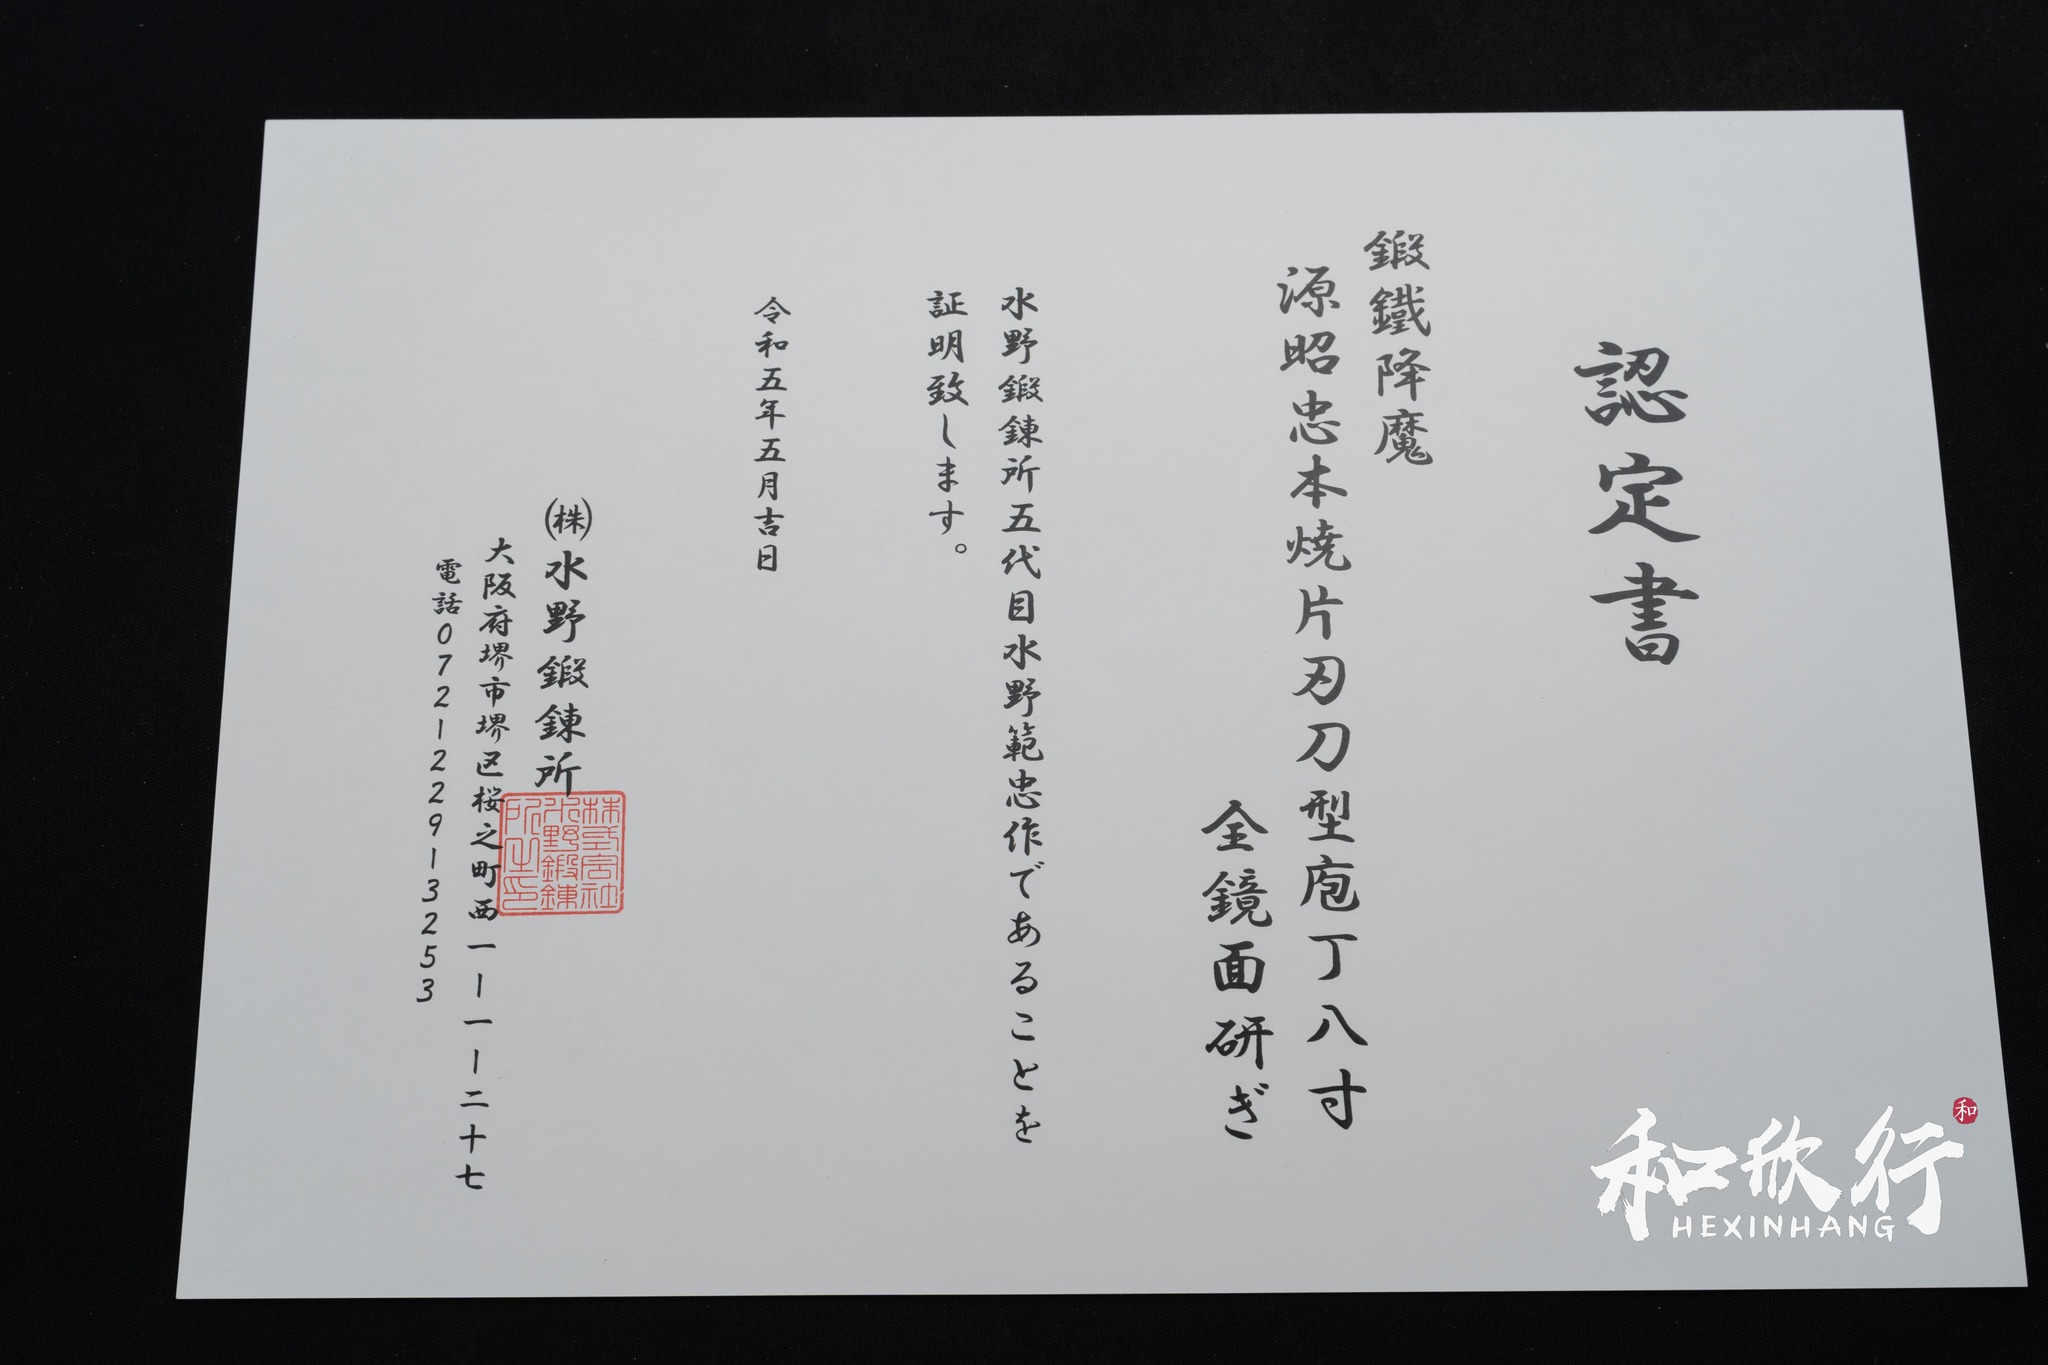 認定書
鍛鐵降魔
源昭忠本焼片刃刀型庖丁八寸
全鏡面研ぎ
水野鍛錬所五代目水野範忠作であることを
証明致します。
令和五年五月吉日
㈱水野鍛錬所
大阪府堺市堺区桜之町西一ー一ー二十七
電話072ー229ー3253
株式会社
水野鍛錬
所之印
和欣行
和
HEXINHANG